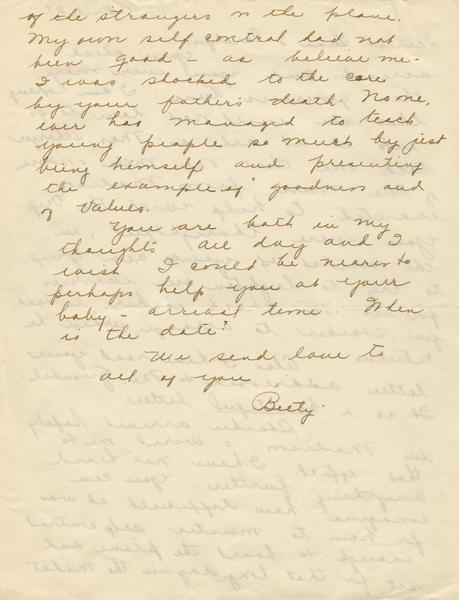 of the strangers on the plane.
My own self control had not
been good – as believe me.
I was shocked to the core
by your father's death. No one,
ever has managed to teach
young people so much by just
being himself and presenting
the example of goodness and
of values.
You are both in my
thoughts all day and I
wish I could be nearer to
perhaps help you at your
baby – arrival time. When
is the date?
We send love to
all of you
Betty.